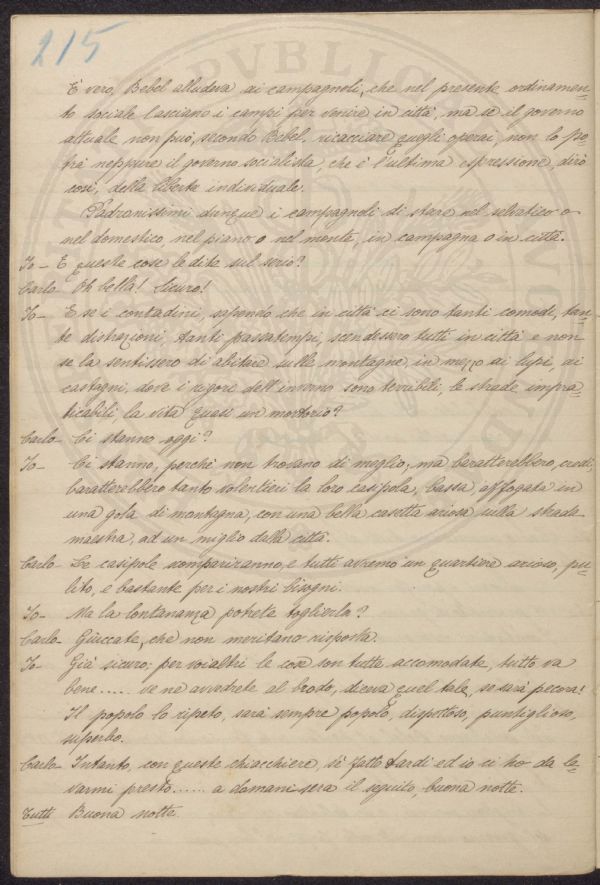 215
È vero, Bebel alludeva ai campagnoli, che nel presente ordinamen=
to sociale lasciano i campi per venire in città, ma se il governo
attuale non può, secondo Bebel, ricacciare quegli operai, non lo po=
trà neppure il governo socialista, che è l'ultima espressione, dirò
così, della libertà individuale.
Padronissimi dunque i campagnoli di stare nel selvatico o
nel domestico, nel piano o nel monte, in campagna o in città.
Io – E queste cose le dite sul serio?
Carlo – Oh bella! Sicuro!
Io – E se i contadini, sapendo che in città ci sono tanti comodi, tan=
te distrazioni, tanti passatempi, scendessero tutti in città e non
se la sentissero di abitare sulle montagne, in mezzo ai lupi, ai
castagni, dove i rigori dell'inverno sono terribili, le strade impra=
ticabili la vita quasi un mortorio?
Carlo – Ci stanno oggi?
Io – Ci stanno, perchè non trovano di meglio; ma baratterebbero, credi,
baratterebbero tanto volentieri la loro casipola, bassa, affogata in
una gola di montagna, con una bella casetta ariosa sulla strada
maestra, ad un miglio dalla città.
Carlo – Le casipole scompariranno, e tutti avremo un quartiere arioso, pu=
lito, e bastante per i nostri bisogni.
Io – Ma la lontananza potrete toglierla?
Carlo – Giuccate, che non meritano risposta.
Io – Già sicuro; per voialtri le cose son tutte accomodate, tutto va
bene...... ve ne avvedrete al brodo, diceva quel tale, se sarà pecora!
Il popolo lo ripeto, sarà sempre popolo, dispettoso, puntiglioso,
superbo.
Carlo – Intanto, con queste chiacchiere, s'è fatto tardi ed io ci ho da le=
varmi presto...... a domani sera il seguito, buona notte.
Tutti Buona notte.